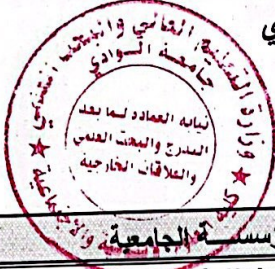 وزارة التعليم العالي والبحث العلمي
جامعة الوادي
نيابة العمادة لما بعد
التدرج والبحث العلمي
والعلاقات الخارجية
الجامعية